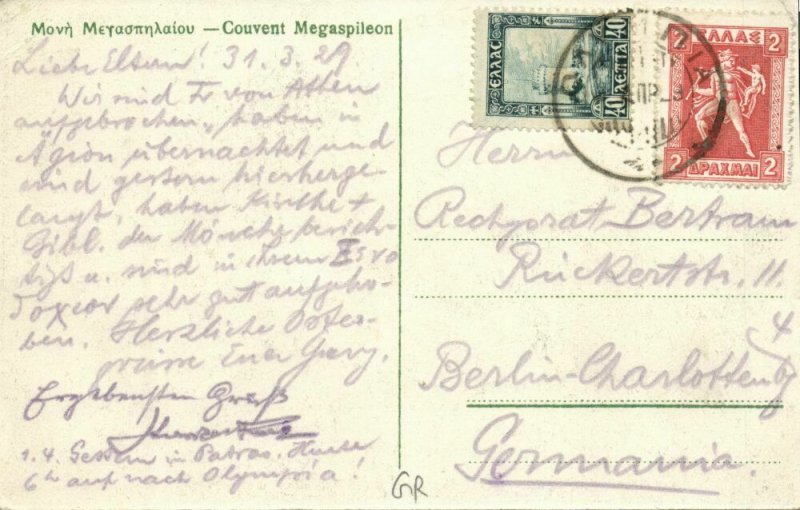 Μονὴ Μεγασπηλαίου — Couvent Megaspileon
Liebe Eltern! 31.3.29
Wir sind Fr von Athen
aufgebrochen, haben in
Ägion übernachtet und
sind gestern hierherge-
langt, haben Kirche +
Bibl. der Mönche besich-
tigt u. sind in ihrem Ξενο
δοχεον sehr gut aufgeho-
ben. Herzliche Oster-
grüsse Euer Georg.
Ergebensten Gruß
1.4. Gestern in Patras. Heute
6h auf nach Olympia!
GR
ΕΛΛΑΣ
40 ΛΕΠΤΑ 40
ΕΛΛΑΣ
2 ΔΡΑΧΜΑΙ 2
Herrn
Rechgsrat Bertram
Rückertstr. 11.
4
Berlin-Charlottenbg
Germania.